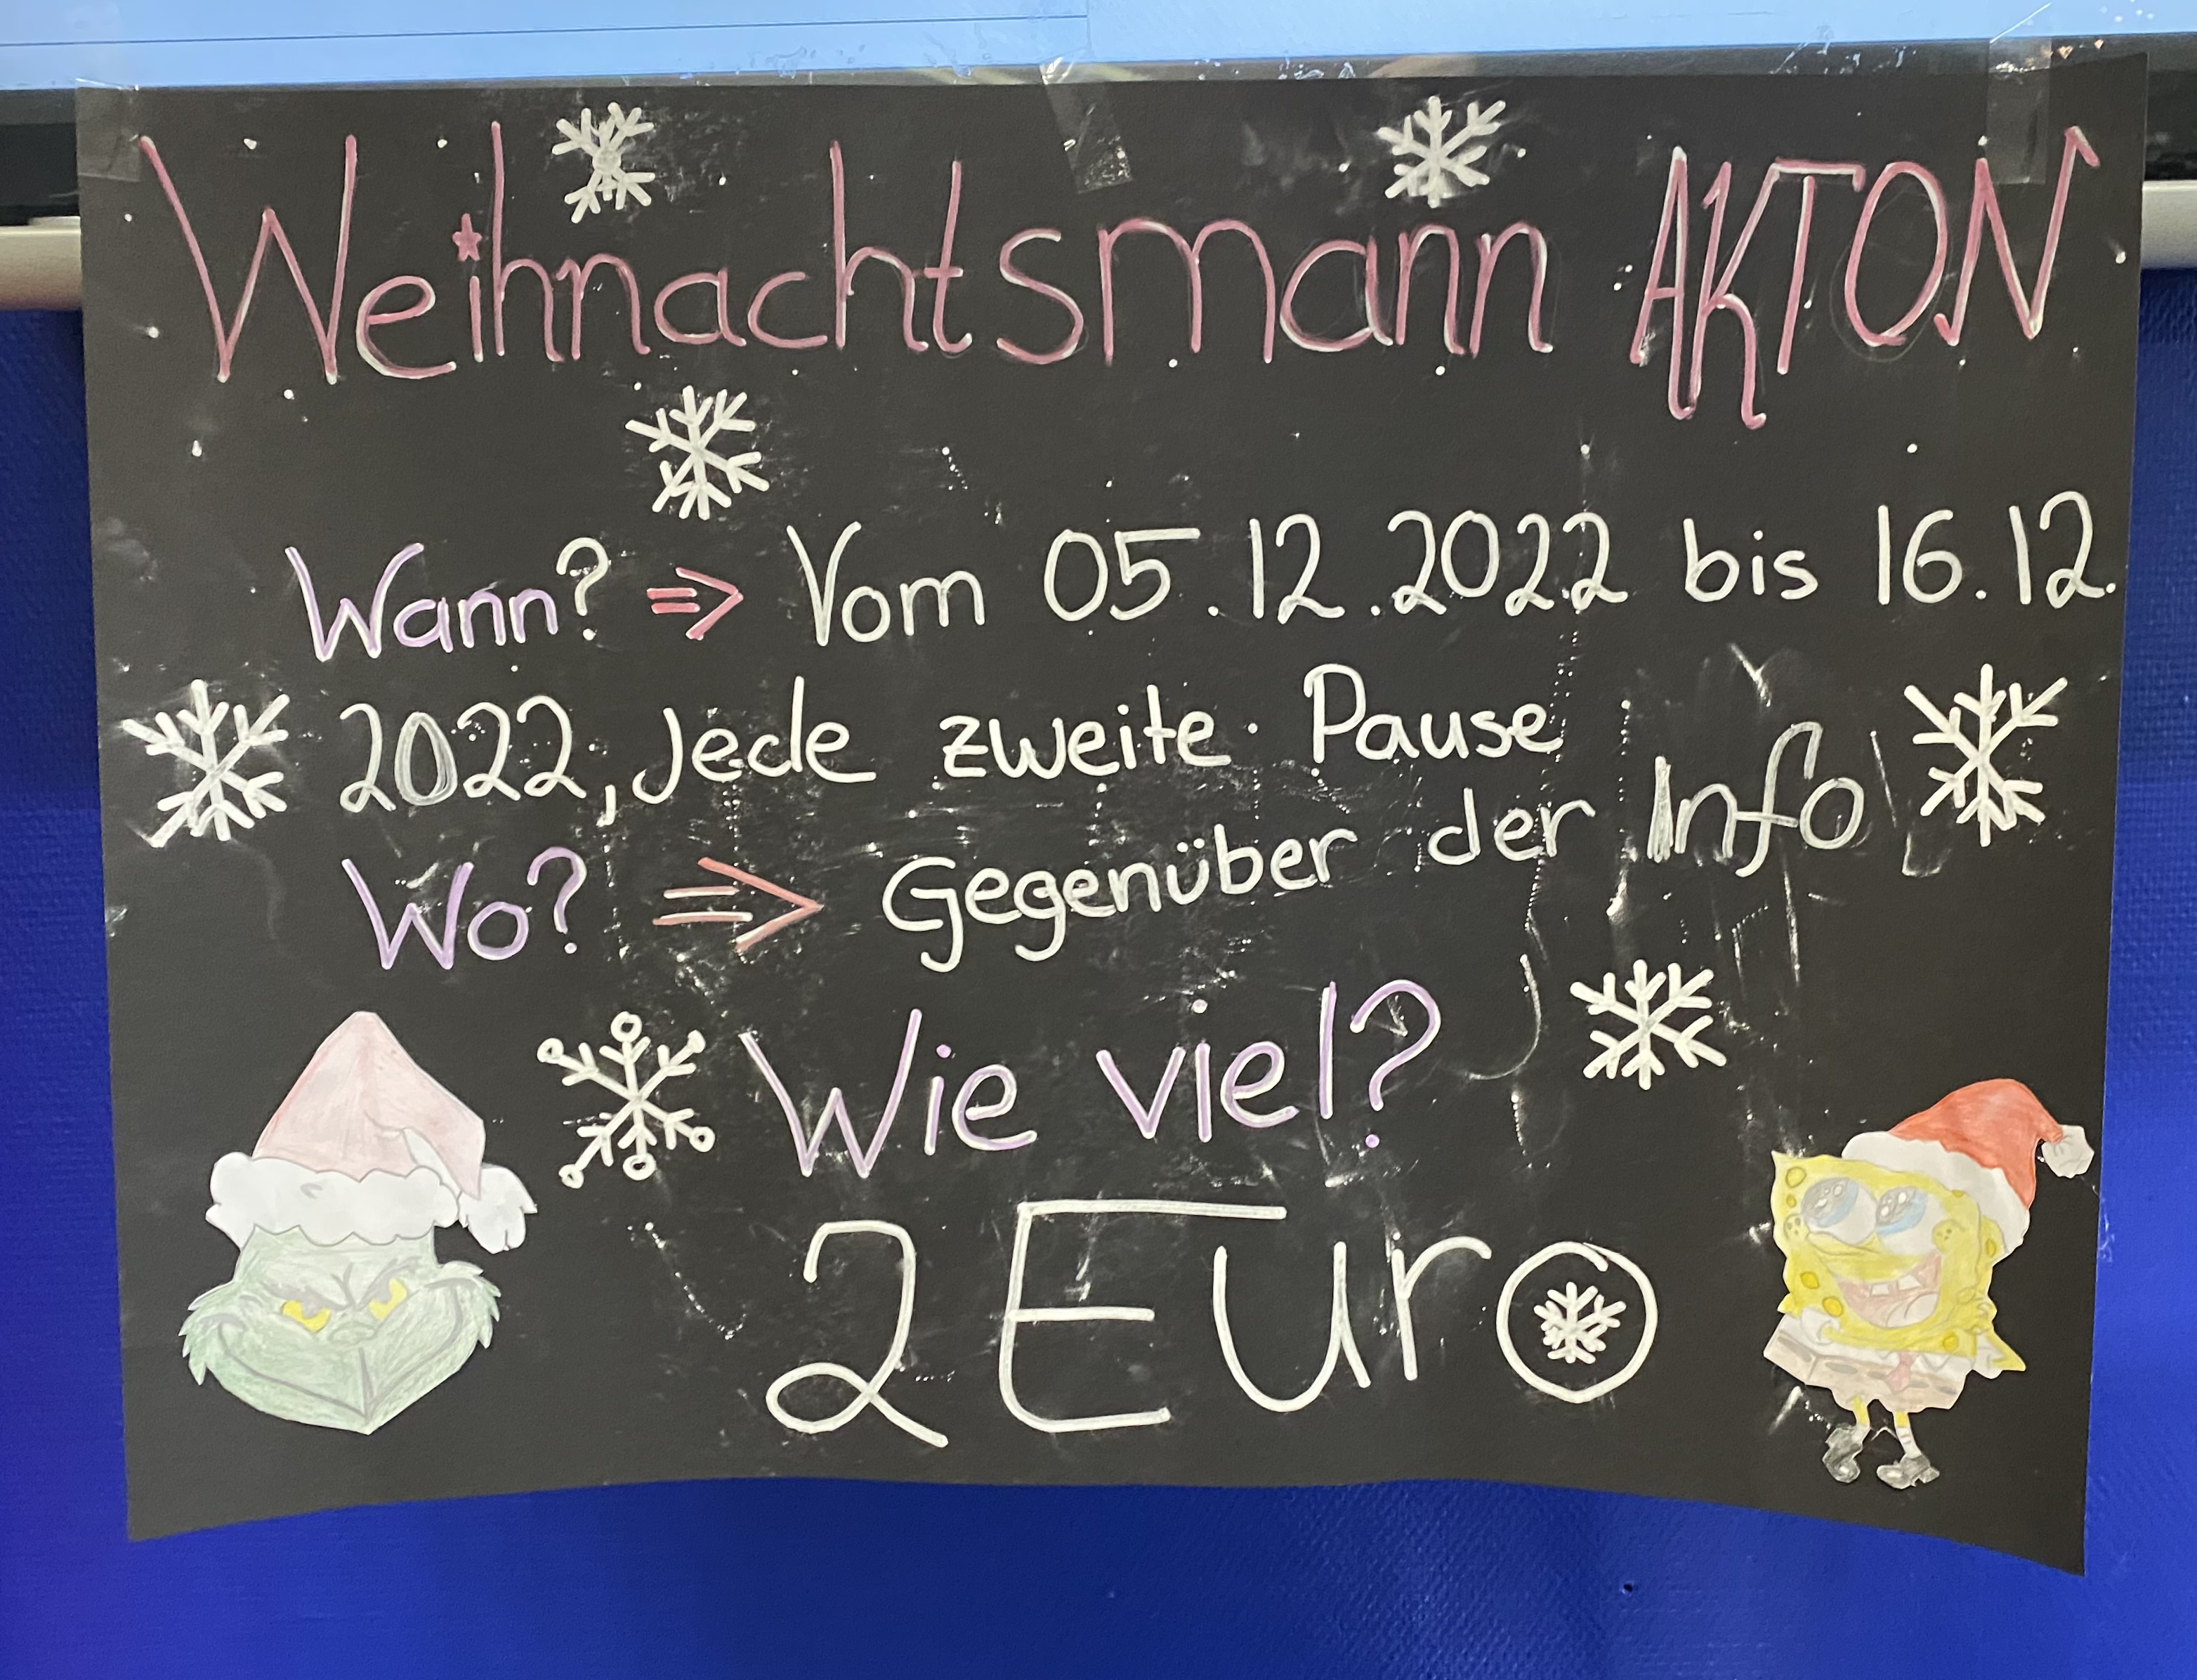 Weihnachtsmann AKTON
Wann? => Vom 05.12.2022 bis 16.12.
2022, Jede zweite Pause
Wo? => Gegenüber der Info
Wie viel?
2 Euro